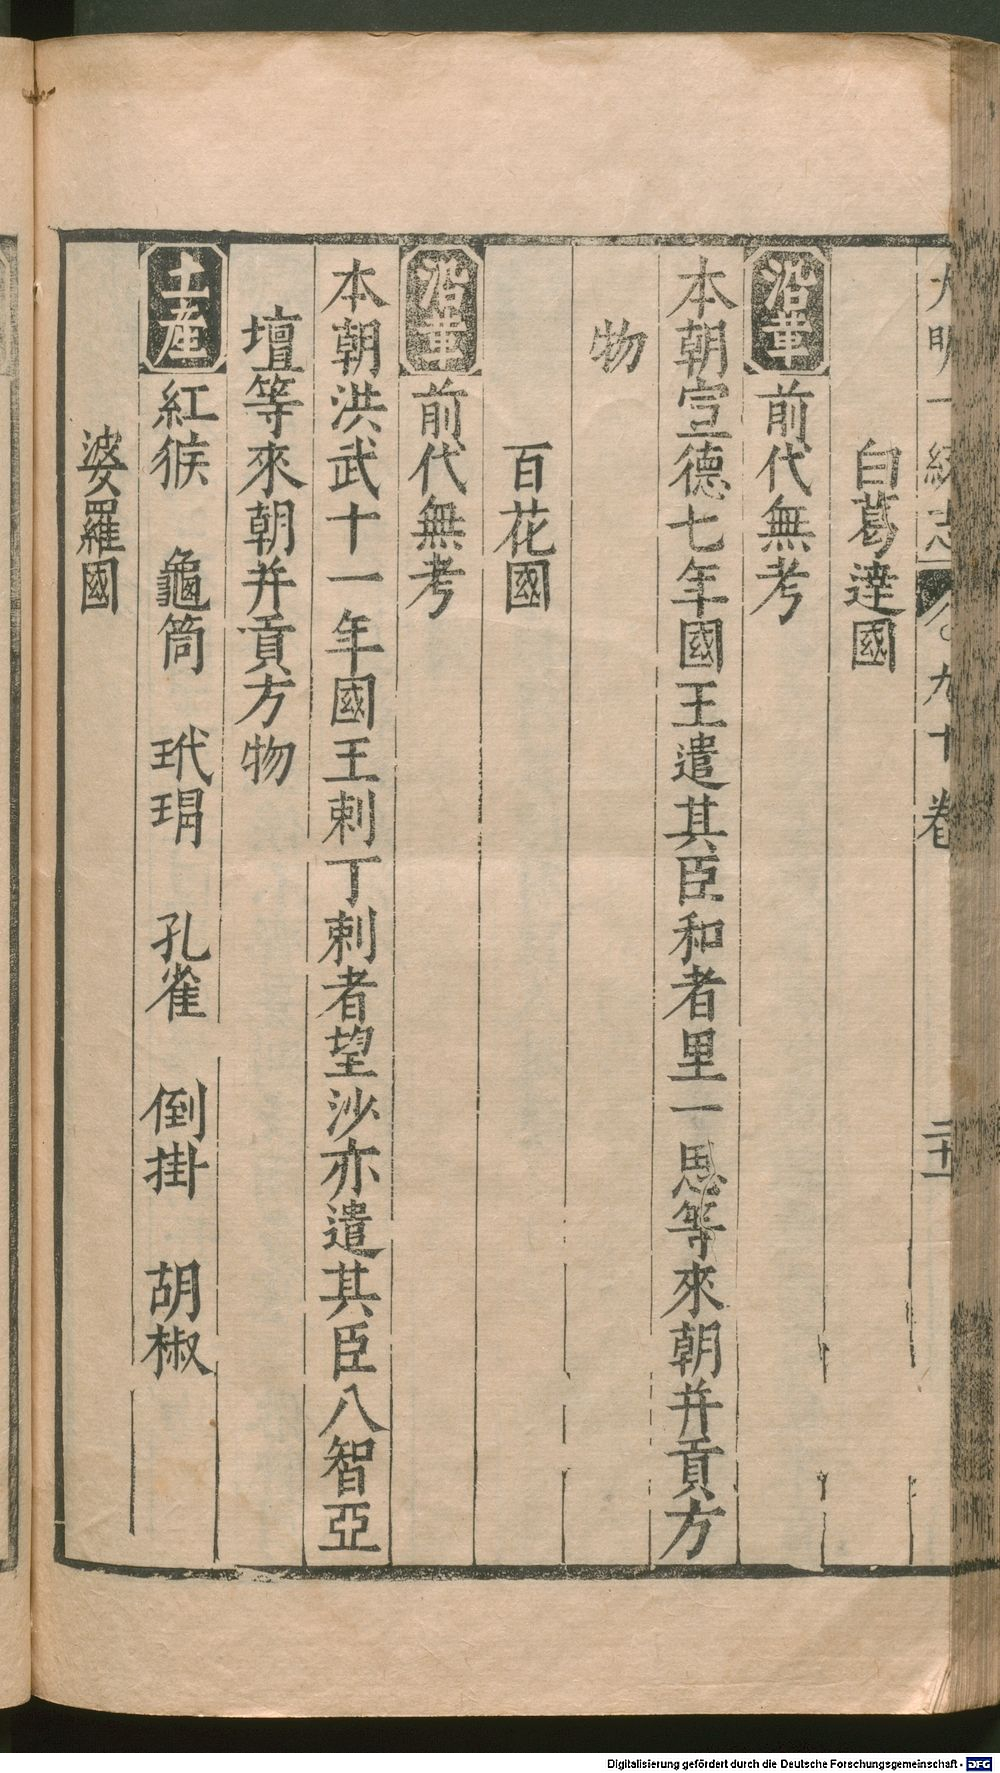 大明一統志 卷九十卷 二十
白葛達國
沿革 前代無考
本朝宣德七年國王遣其臣和者里一思等來朝并貢方
物
百花國
沿革 前代無考
本朝洪武十一年國王剌丁剌者望沙亦遣其臣八智亞
壇等來朝并貢方物
土產 紅猴 龜筒 玳瑁 孔雀 倒掛 胡椒
婆羅國
Digitalisierung gefördert durch die Deutsche Forschungsgemeinschaft - DFG